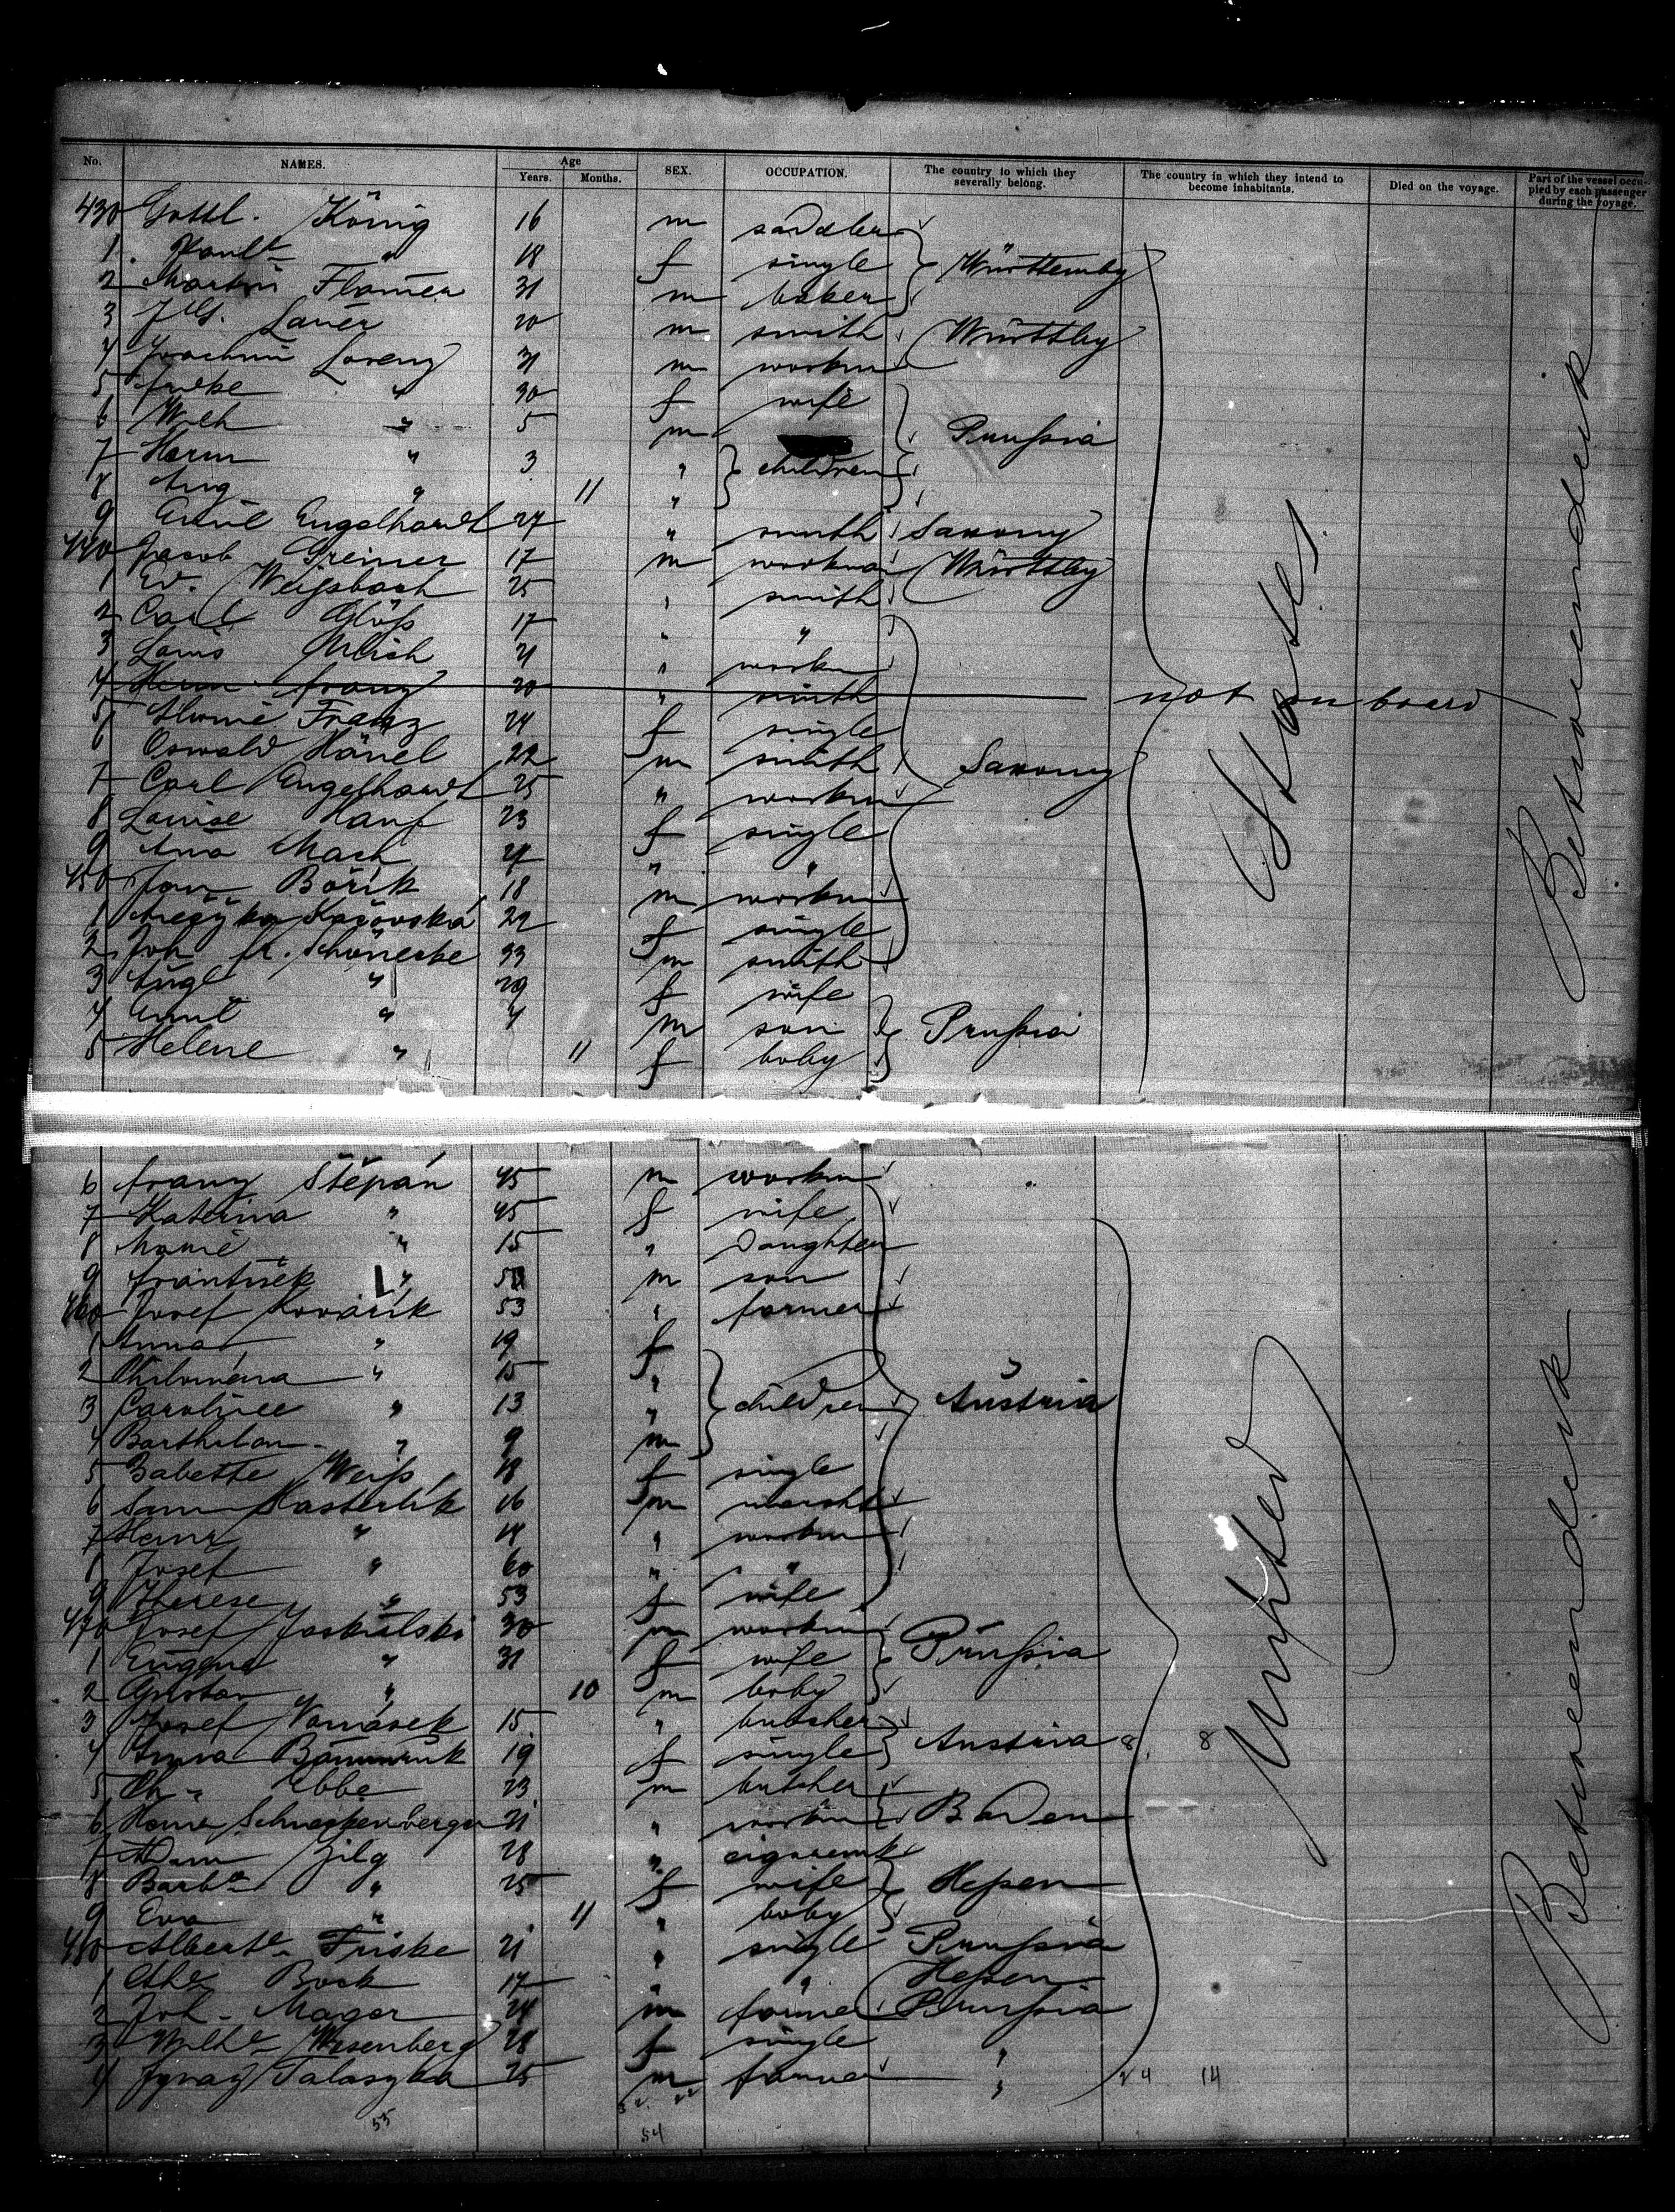 No. NAMES. Age Years. Months. SEX. OCCUPATION. The country to which they severally belong. The country in which they intend to become inhabitants. Died on the voyage. Part of the vessel occupied by each passenger during the voyage.
430 Gottl. König 16 m saddler
1 Paul " 18 f single Württembg
2 Martin Flamer 31 m baker
3 Lauer 20 m smith Württbg
4 Joachim Lorenz 31 m workm
5 " 30 f wife
6 Wilh " 5 m Prussia
7 Herm " 3 " children
8 Aug " 11 "
9 Emil Engelhardt 27 " smith Saxony
440 Jacob Greiner 17 m workman Württbg
1 Ed. Weissbach 25 " smith
2 Carl Glöss 17 " "
3 Louis Ulrich 21 " workm
4 Herm. Franz 20 " smith not on board
5 Franz 24 f single
6 Oswald Hänel 22 m smith Saxony
7 Carl Engelhardt 25 " workm
8 Louise Hauf 23 f single
9 Ana Mach 27 " "
450 Jan Bořik 18 m workm
1 22 f single
2 Joh fr. Schönecke 33 m smith
3 Augl " 29 f wife
4 Emil " 4 m son Prussia
5 Helene " 11 f baby
States
Betweendeck
6 Franz Štěpán 45 m workm "
7 Katerina " 45 f wife
8 Marie " 15 " Daughter
9 František " m son
460 Josef Kovářík 53 " farmer
1 Anna " 19 f
2 Philomena " 15 "
3 Caroline " 13 " children Austria
4 Barthelom. " 9 m
5 Babette Weiss 18 f single
6 Sam Kasterlik 16 m
7 Heinr " 14 " workm
8 Josef " 60 " "
9 Therese " 53 f wife
470 Josef Jaskulski 30 m workm
1 Eugena " 31 f wife Prussia
2 Gustav " 10 m baby
3 Josef 15 " butcher
4 Anna 19 f single Austria 8 8
5 Ch. Ebbe 23 m butcher
6 Heinr Schneckenberger 21 " workm Baden
7 Adam Zilg 28 " cigaremk
8 Barb " 25 f wife Hessen
9 Eva " 11 " baby
480 Albert Friske 21 " single Prussia
1 Bock 17 " " Hessen
2 Joh. Mager 24 m farmer Prussia
3 Wilh Wesenberg 28 f single "
4 Talaszka 25 m farmer " 24 14
55 32 22
54
United
Betweendeck